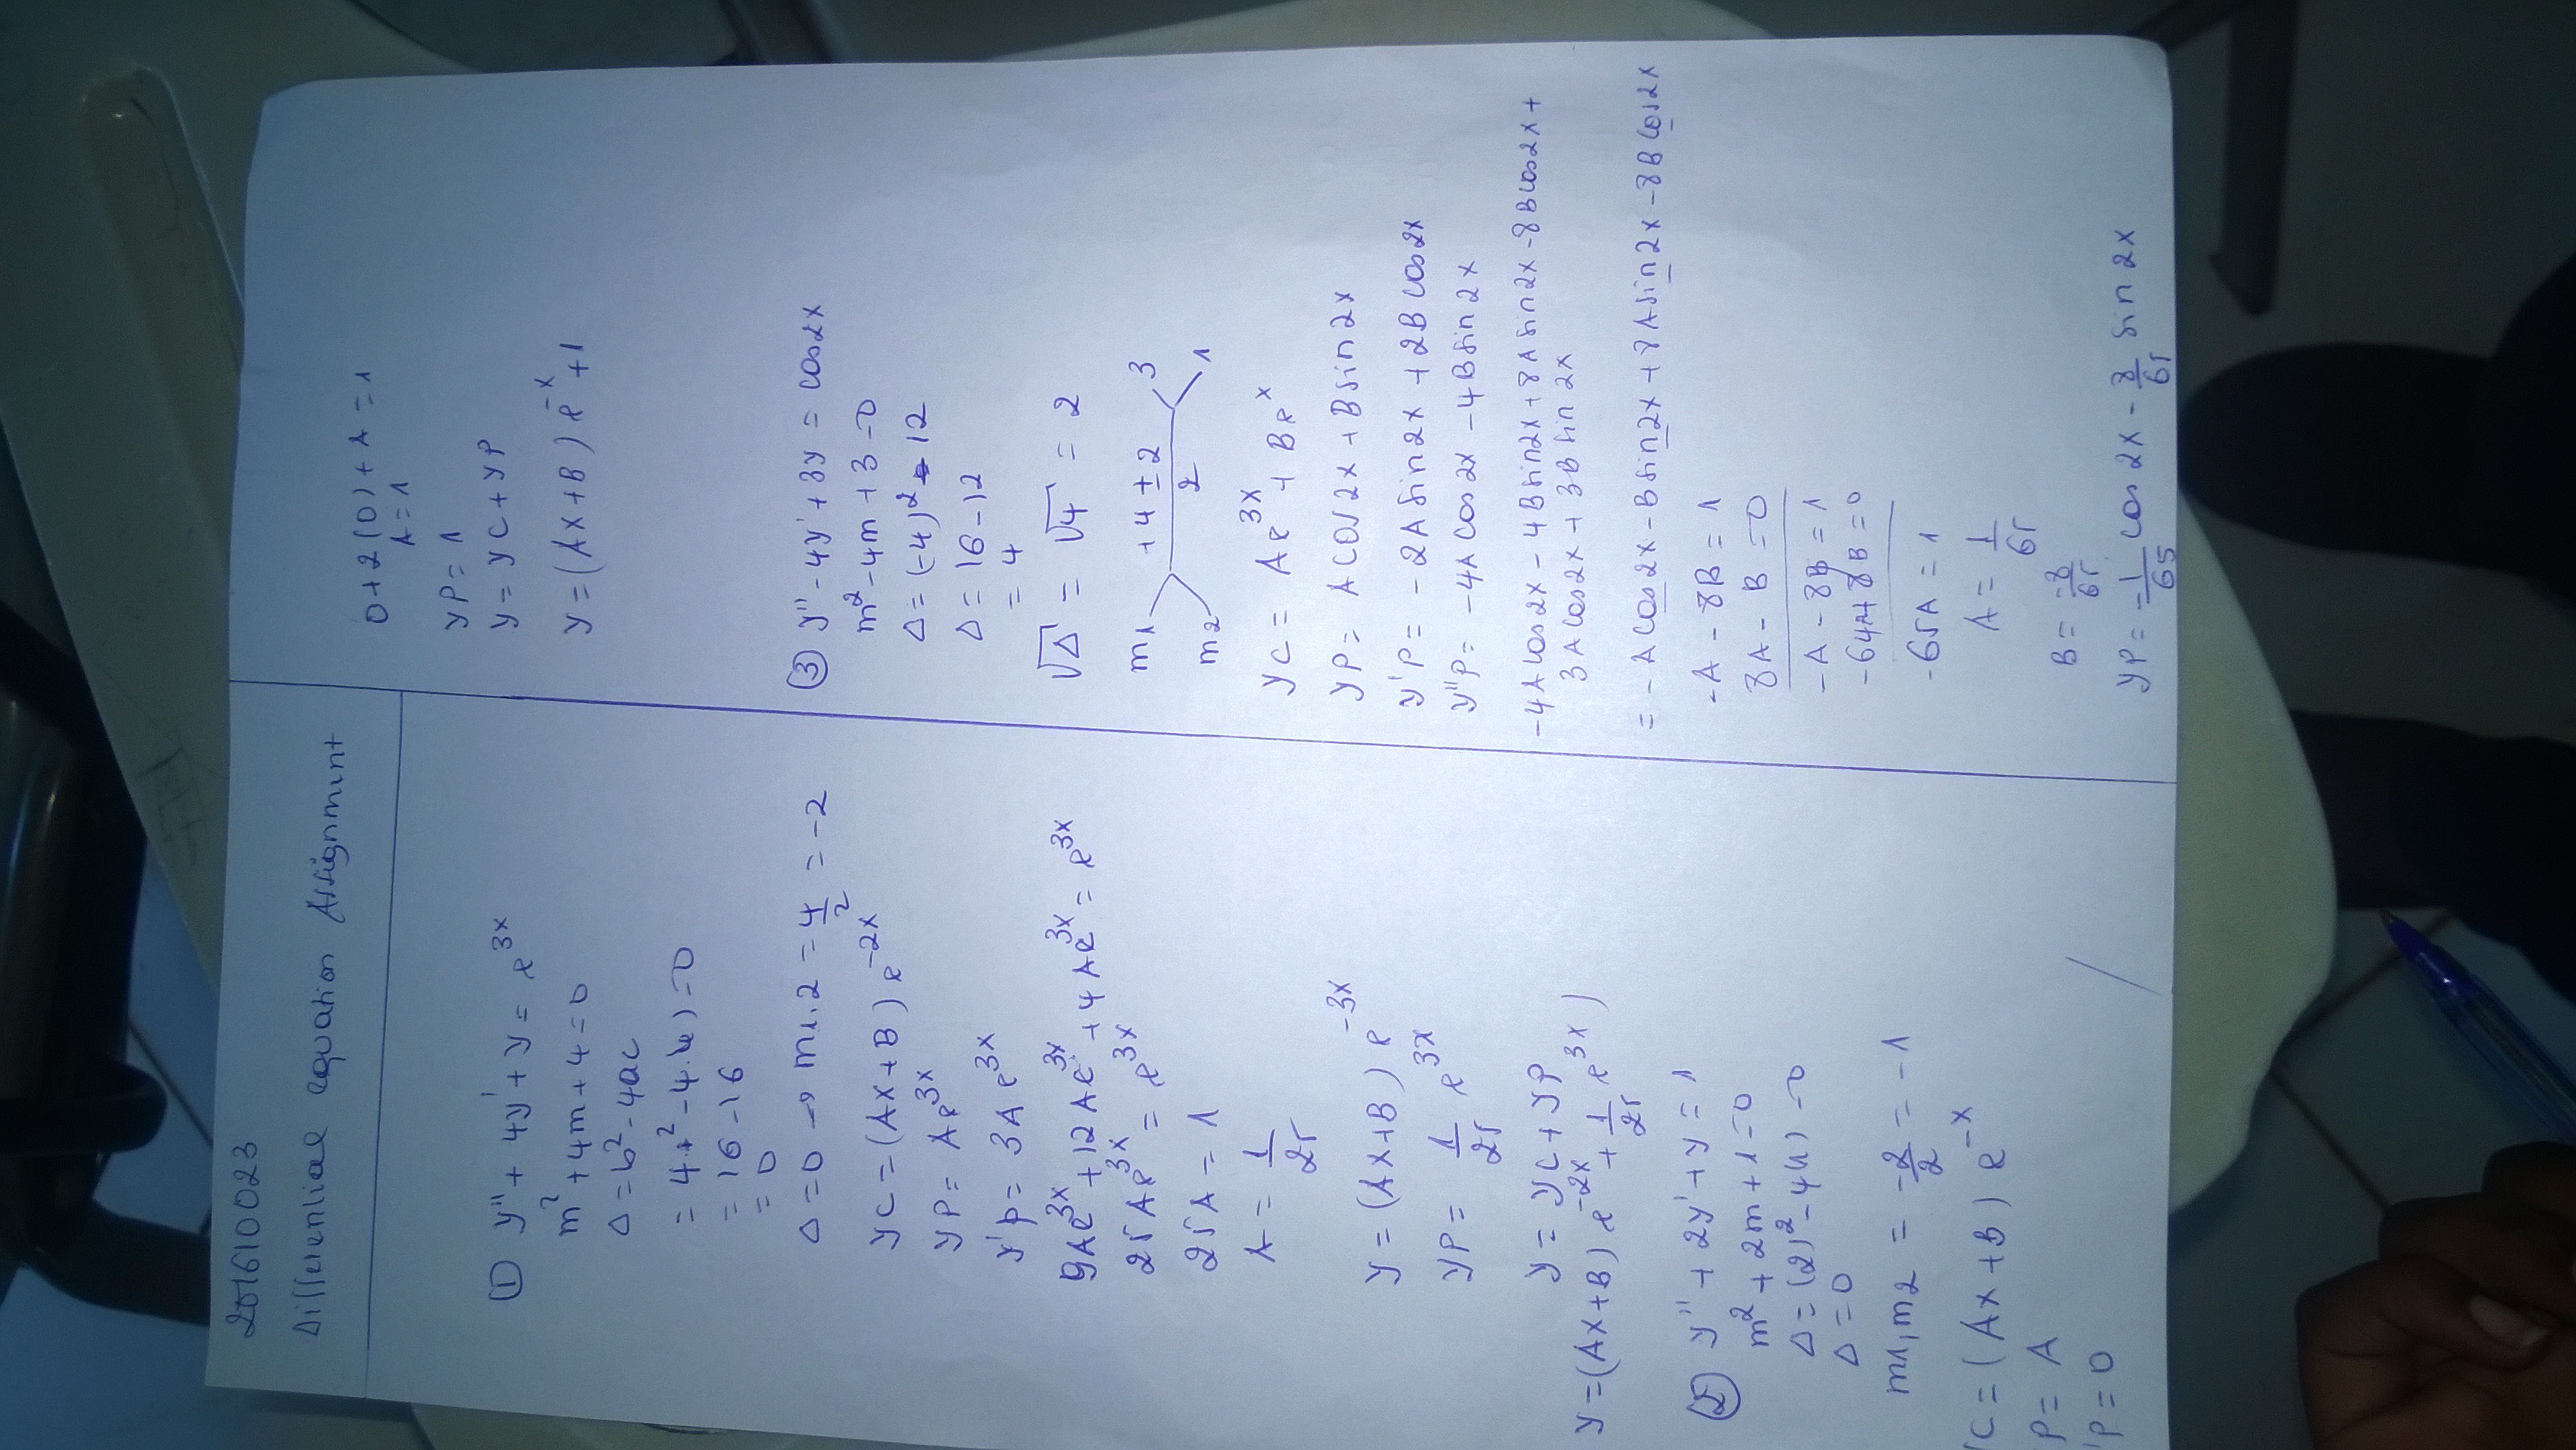 201610023
Differential equation Assignment
① y'' + 4y' + y = e^3x
m² + 4m + 4 = 0
Δ = b² - 4ac
= 16 - 16
= 0
Δ = 0 → m1,2 = 4/2 = -2
yc = (Ax + B) e^-2x
yp = Ae^3x
y'p = 3A e^3x
9Ae^3x + 12Ae^3x + 4Ae^3x = e^3x
25Ae^3x = e^3x
25A = 1
A = 1/25
y = (Ax + B) e^-3x
yp = 1/25 e^3x
y = yc + yp
y = (Ax + B) e^-2x + 1/25 e^3x)
② y'' + 2y' + y = 1
m² + 2m + 1 = 0
Δ = (2)² - 4(1) = 0
Δ = 0
m1, m2 = -2/2 = -1
c = (Ax + B) e^-x
p = A
'p = 0
0 + 2(0) + A = 1
A = 1
yp = 1
y = yc + yp
y = (Ax + B) e^-x + 1
③ y'' - 4y' + 3y = cos2x
m² - 4m + 3 = 0
Δ = (-4)² - 12
Δ = 16 - 12
= 4
√Δ = √4 = 2
m1 m2 +4 ± 2 / 2 3 1
yc = Ae^3x + Be^x
yp = A cos 2x + B sin 2x
y'p = -2A sin 2x + 2B cos 2x
y''p = -4A cos 2x - 4B sin 2x
-4A cos 2x - 4B sin 2x + 8A sin 2x - 8B cos 2x +
3A cos 2x + 3B sin 2x
= -A cos 2x - B sin 2x + 8A sin 2x - 8B cos 2x
-A - 8B = 1
8A - B = 0
-A - 8B = 1
-64A + 8B = 0
-65A = 1
A = 1/65
B = -8/65
yp = -1/65 cos 2x - 8/65 sin 2x